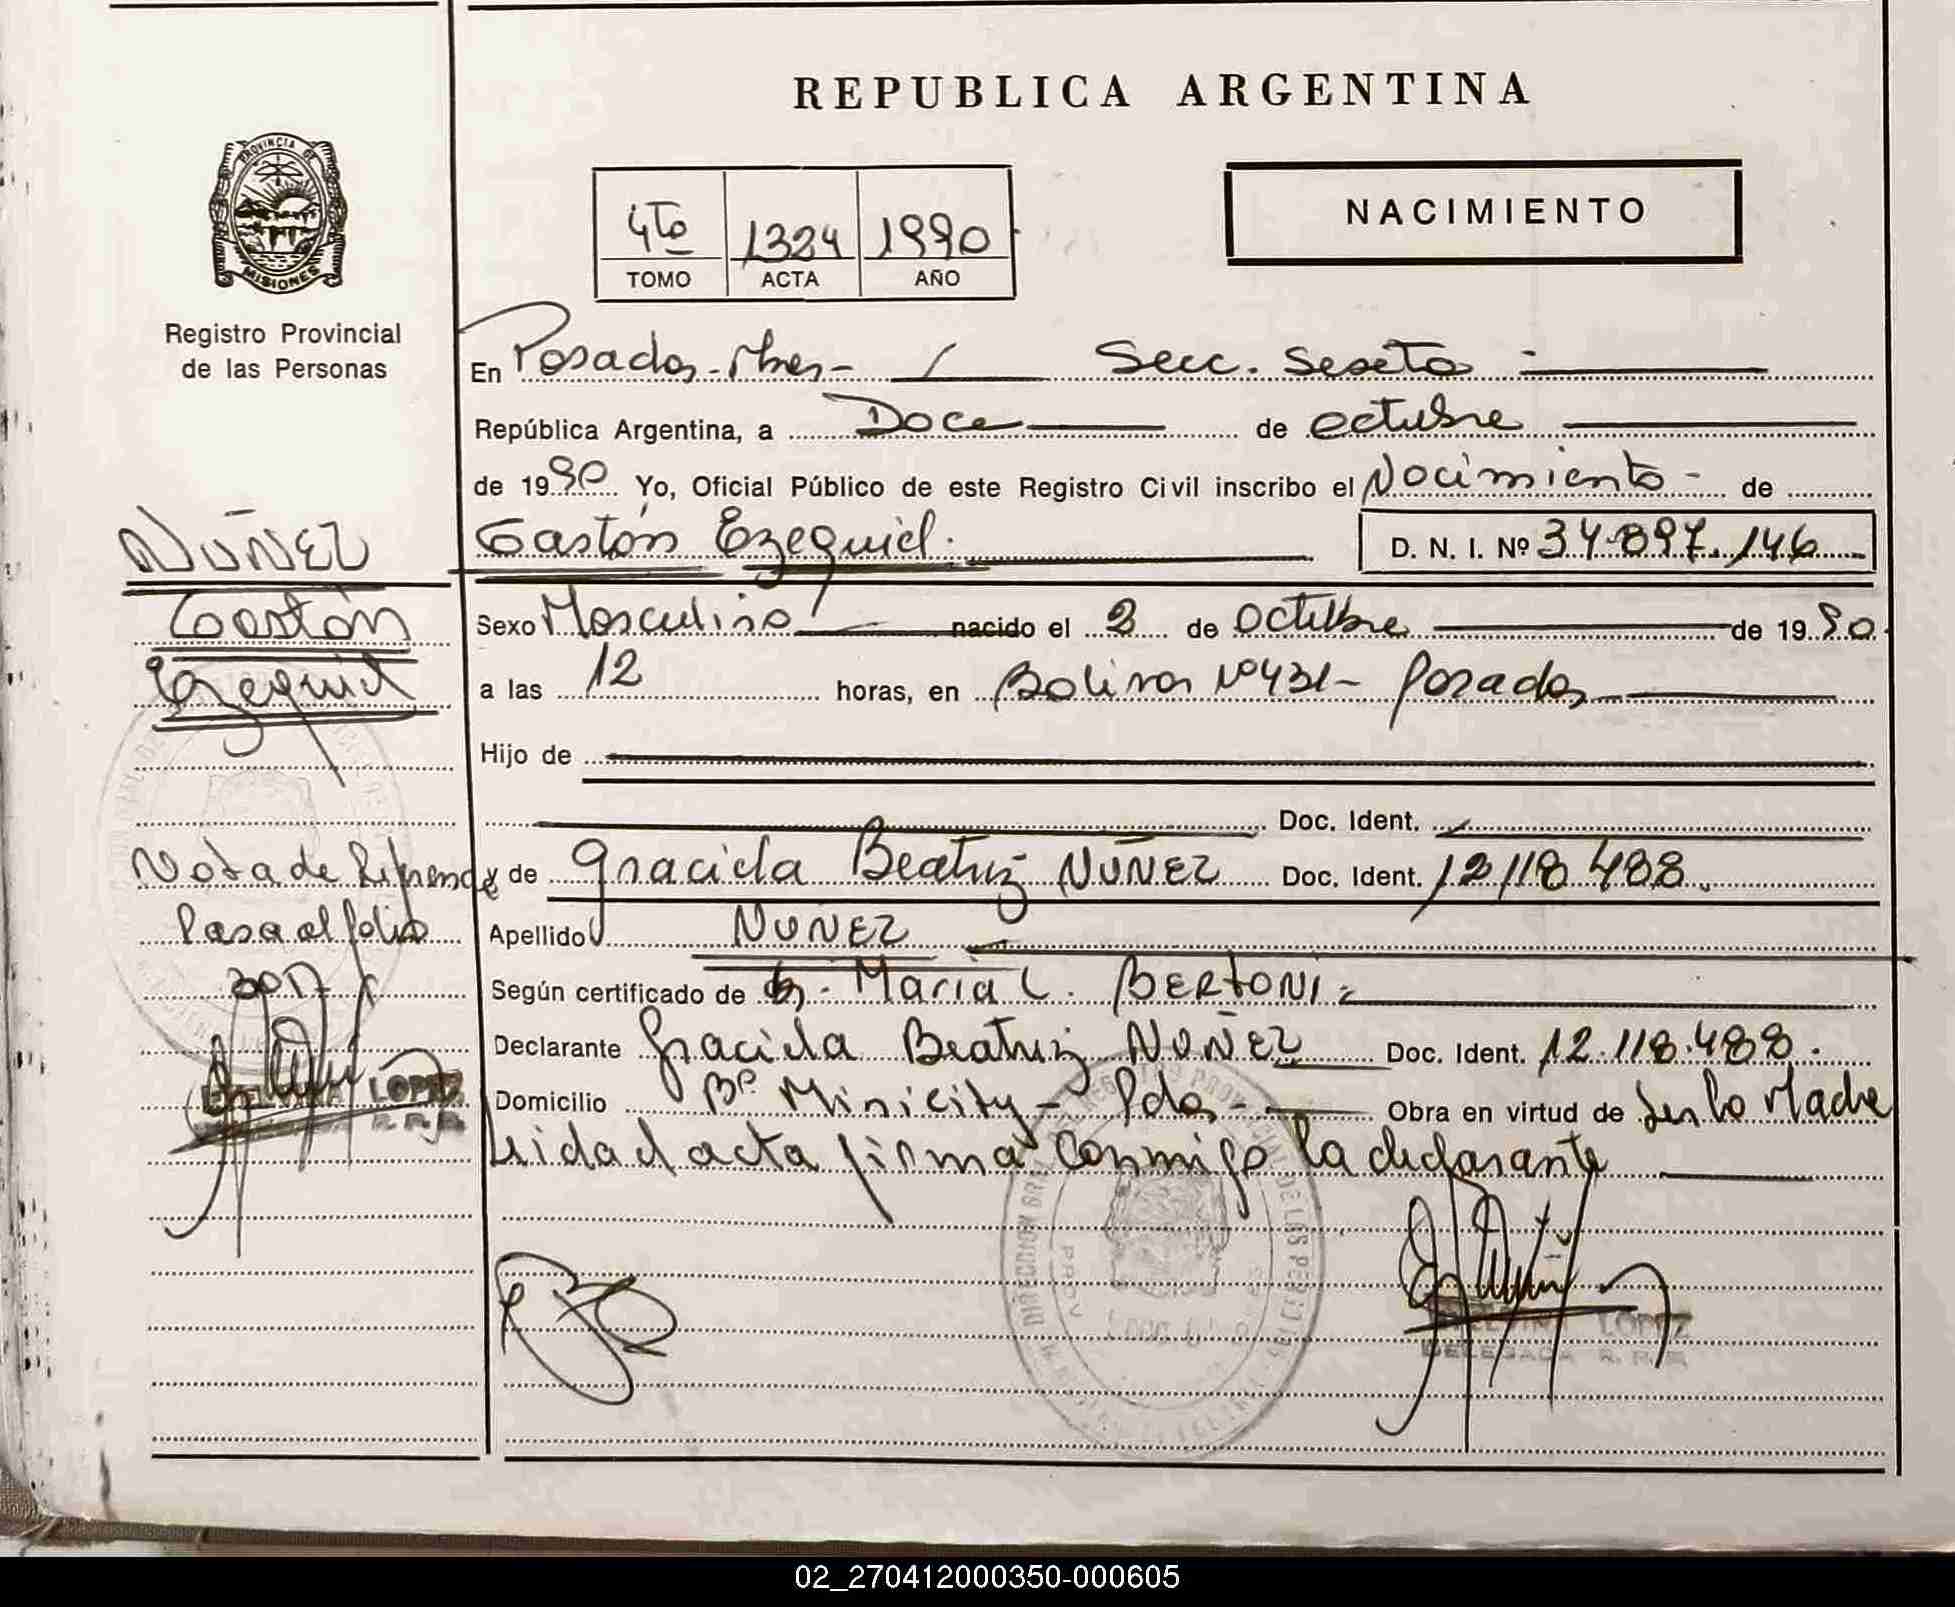 REPUBLICA ARGENTINA
PROVINCIA DE MISIONES
Registro Provincial
de las Personas
4to 1324 1990
TOMO ACTA AÑO
NACIMIENTO
En Posadas - Mnes - / Secc. Sexta
República Argentina, a Doce de octubre
de 1990 Yo, Oficial Público de este Registro Civil inscribo el Nacimiento - de
Gastón Ezequiel. D. N. I. Nº 34.897.146
NUÑEZ
Gastón
Ezequiel
Sexo Masculino nacido el 2 de Octubre de 1990
a las 12 horas, en Bolivar Nº 431 - Posadas
Hijo de
Doc. Ident.
y de Graciela Beatriz NUÑEZ Doc. Ident. 12.118.488.
Apellido NUÑEZ
Según certificado de Maria C. BERTONI
Declarante Graciela Beatriz NUÑEZ Doc. Ident. 12.118.488.
Domicilio Bº Minicity - Pdas - Obra en virtud de Ser la Madre
Leida el acta firma conmigo la declarante
Nota de
Pasa al folio
LOPEZ
LOPEZ
DELEGADA R. P. P.
02_270412000350-000605